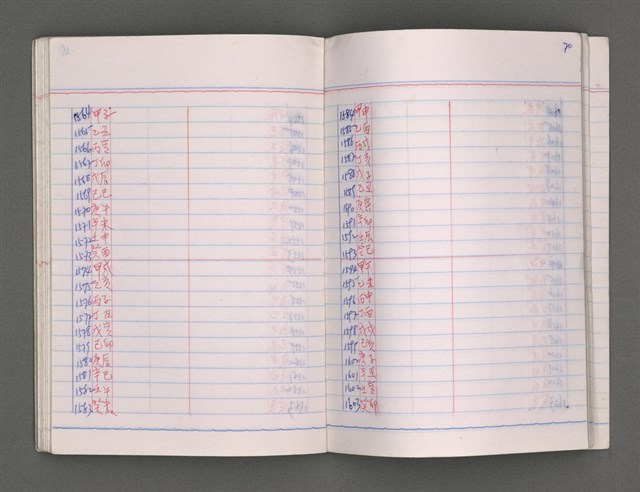 1564 甲子
1565 乙丑
1566 丙寅
1567 丁卯
1568 戊辰
1569 己巳
1570 庚午
1571 辛未
1572 壬申
1573 癸酉
1574 甲戌
1575 乙亥
1576 丙子
1577 丁丑
1578 戊寅
1579 己卯
1580 庚辰
1581 辛巳
1582 壬午
1583 癸未
70
1584 甲申
1585 乙酉
1586 丙戌
1587 丁亥
1588 戊子
1589 己丑
1590 庚寅
1591 辛卯
1592 壬辰
1593 癸巳
1594 甲午
1595 乙未
1596 丙申
1597 丁酉
1598 戊戌
1599 己亥
1600 庚子
1601 辛丑
1602 壬寅
1603 癸卯